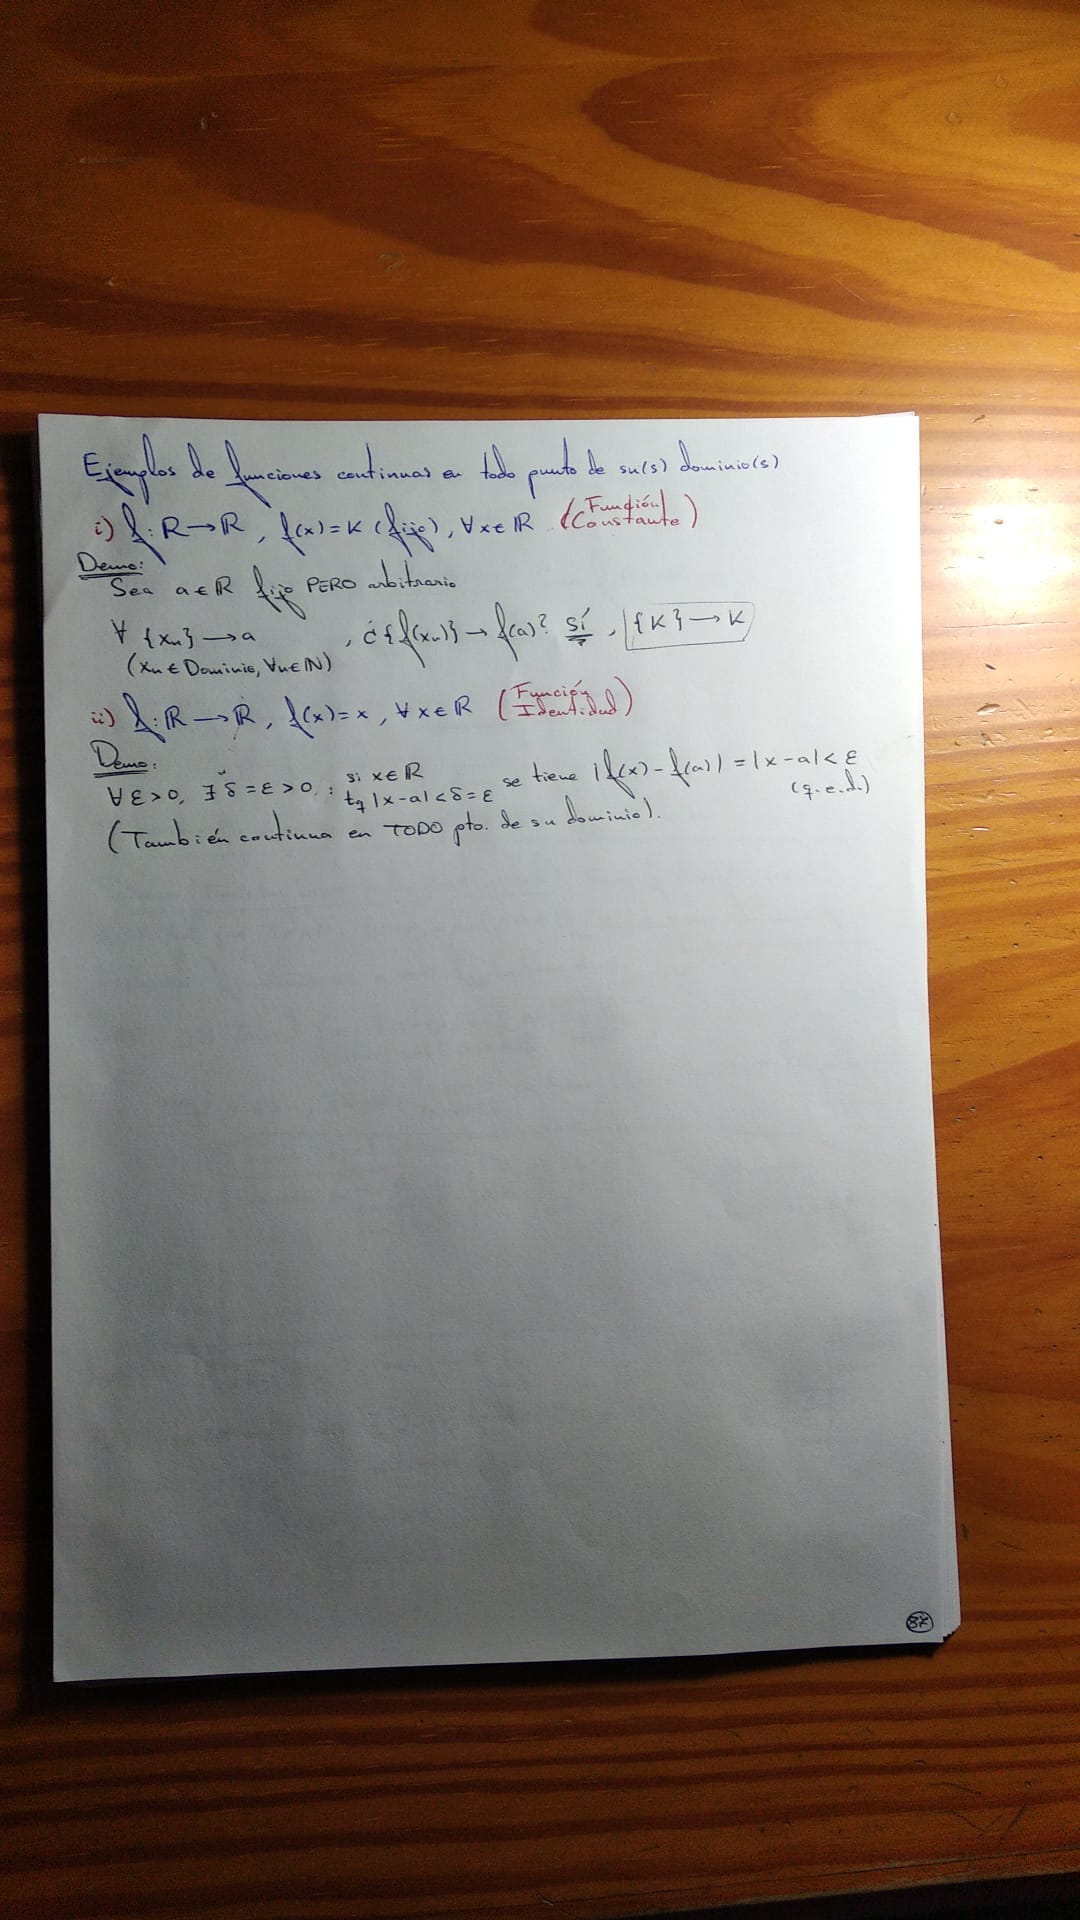 Ejemplos de funciones continuas en todo punto de su(s) dominio(s)
i) f: ℝ → ℝ, f(x) = K (fijo), ∀ x ∈ ℝ (Función Constante)
Demo:
Sea a ∈ ℝ fijo PERO arbitrario
∀ {xn} → a , ¿{f(xn)} → f(a)? Sí, {K} → K
(xn ∈ Dominio, ∀n ∈ ℕ)
ii) f: ℝ → ℝ, f(x) = x, ∀ x ∈ ℝ (Función Identidad)
Demo:
∀ ε > 0, ∃ δ = ε > 0, : si x ∈ ℝ tq |x - a| < δ = ε se tiene |f(x) - f(a)| = |x - a| < ε
(q.e.d.)
(También continua en TODO pto. de su dominio).